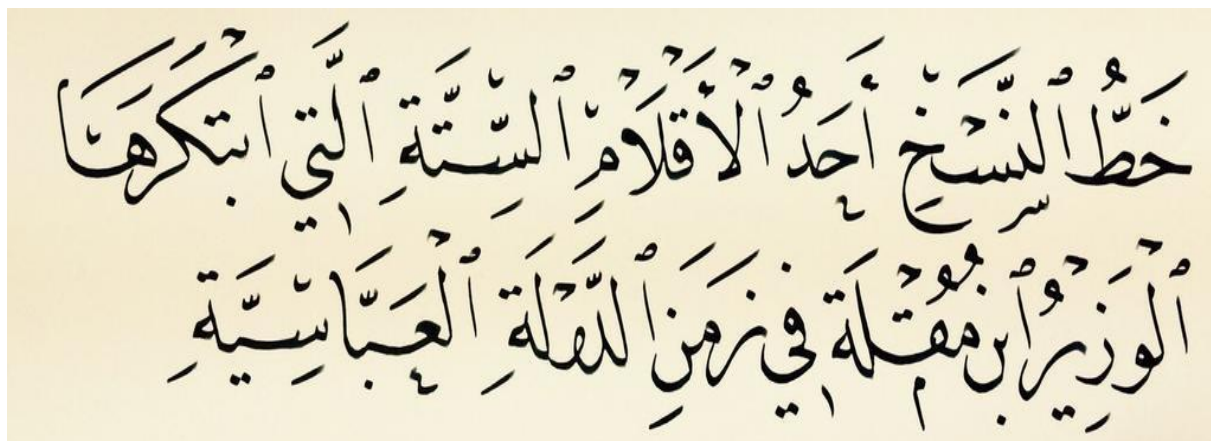 خَطُّ ٱلنَّسْخِ أَحَدُ ٱلْأَقْلَامِ ٱلسِّتَّةِ ٱلَّتِي ٱبْتَكَرَهَا
ٱلْوَزِيرُ ٱبْنُ مُقْلَةَ فِي زَمَنِ ٱلدَّوْلَةِ ٱلْعَبَّاسِيَّةِ